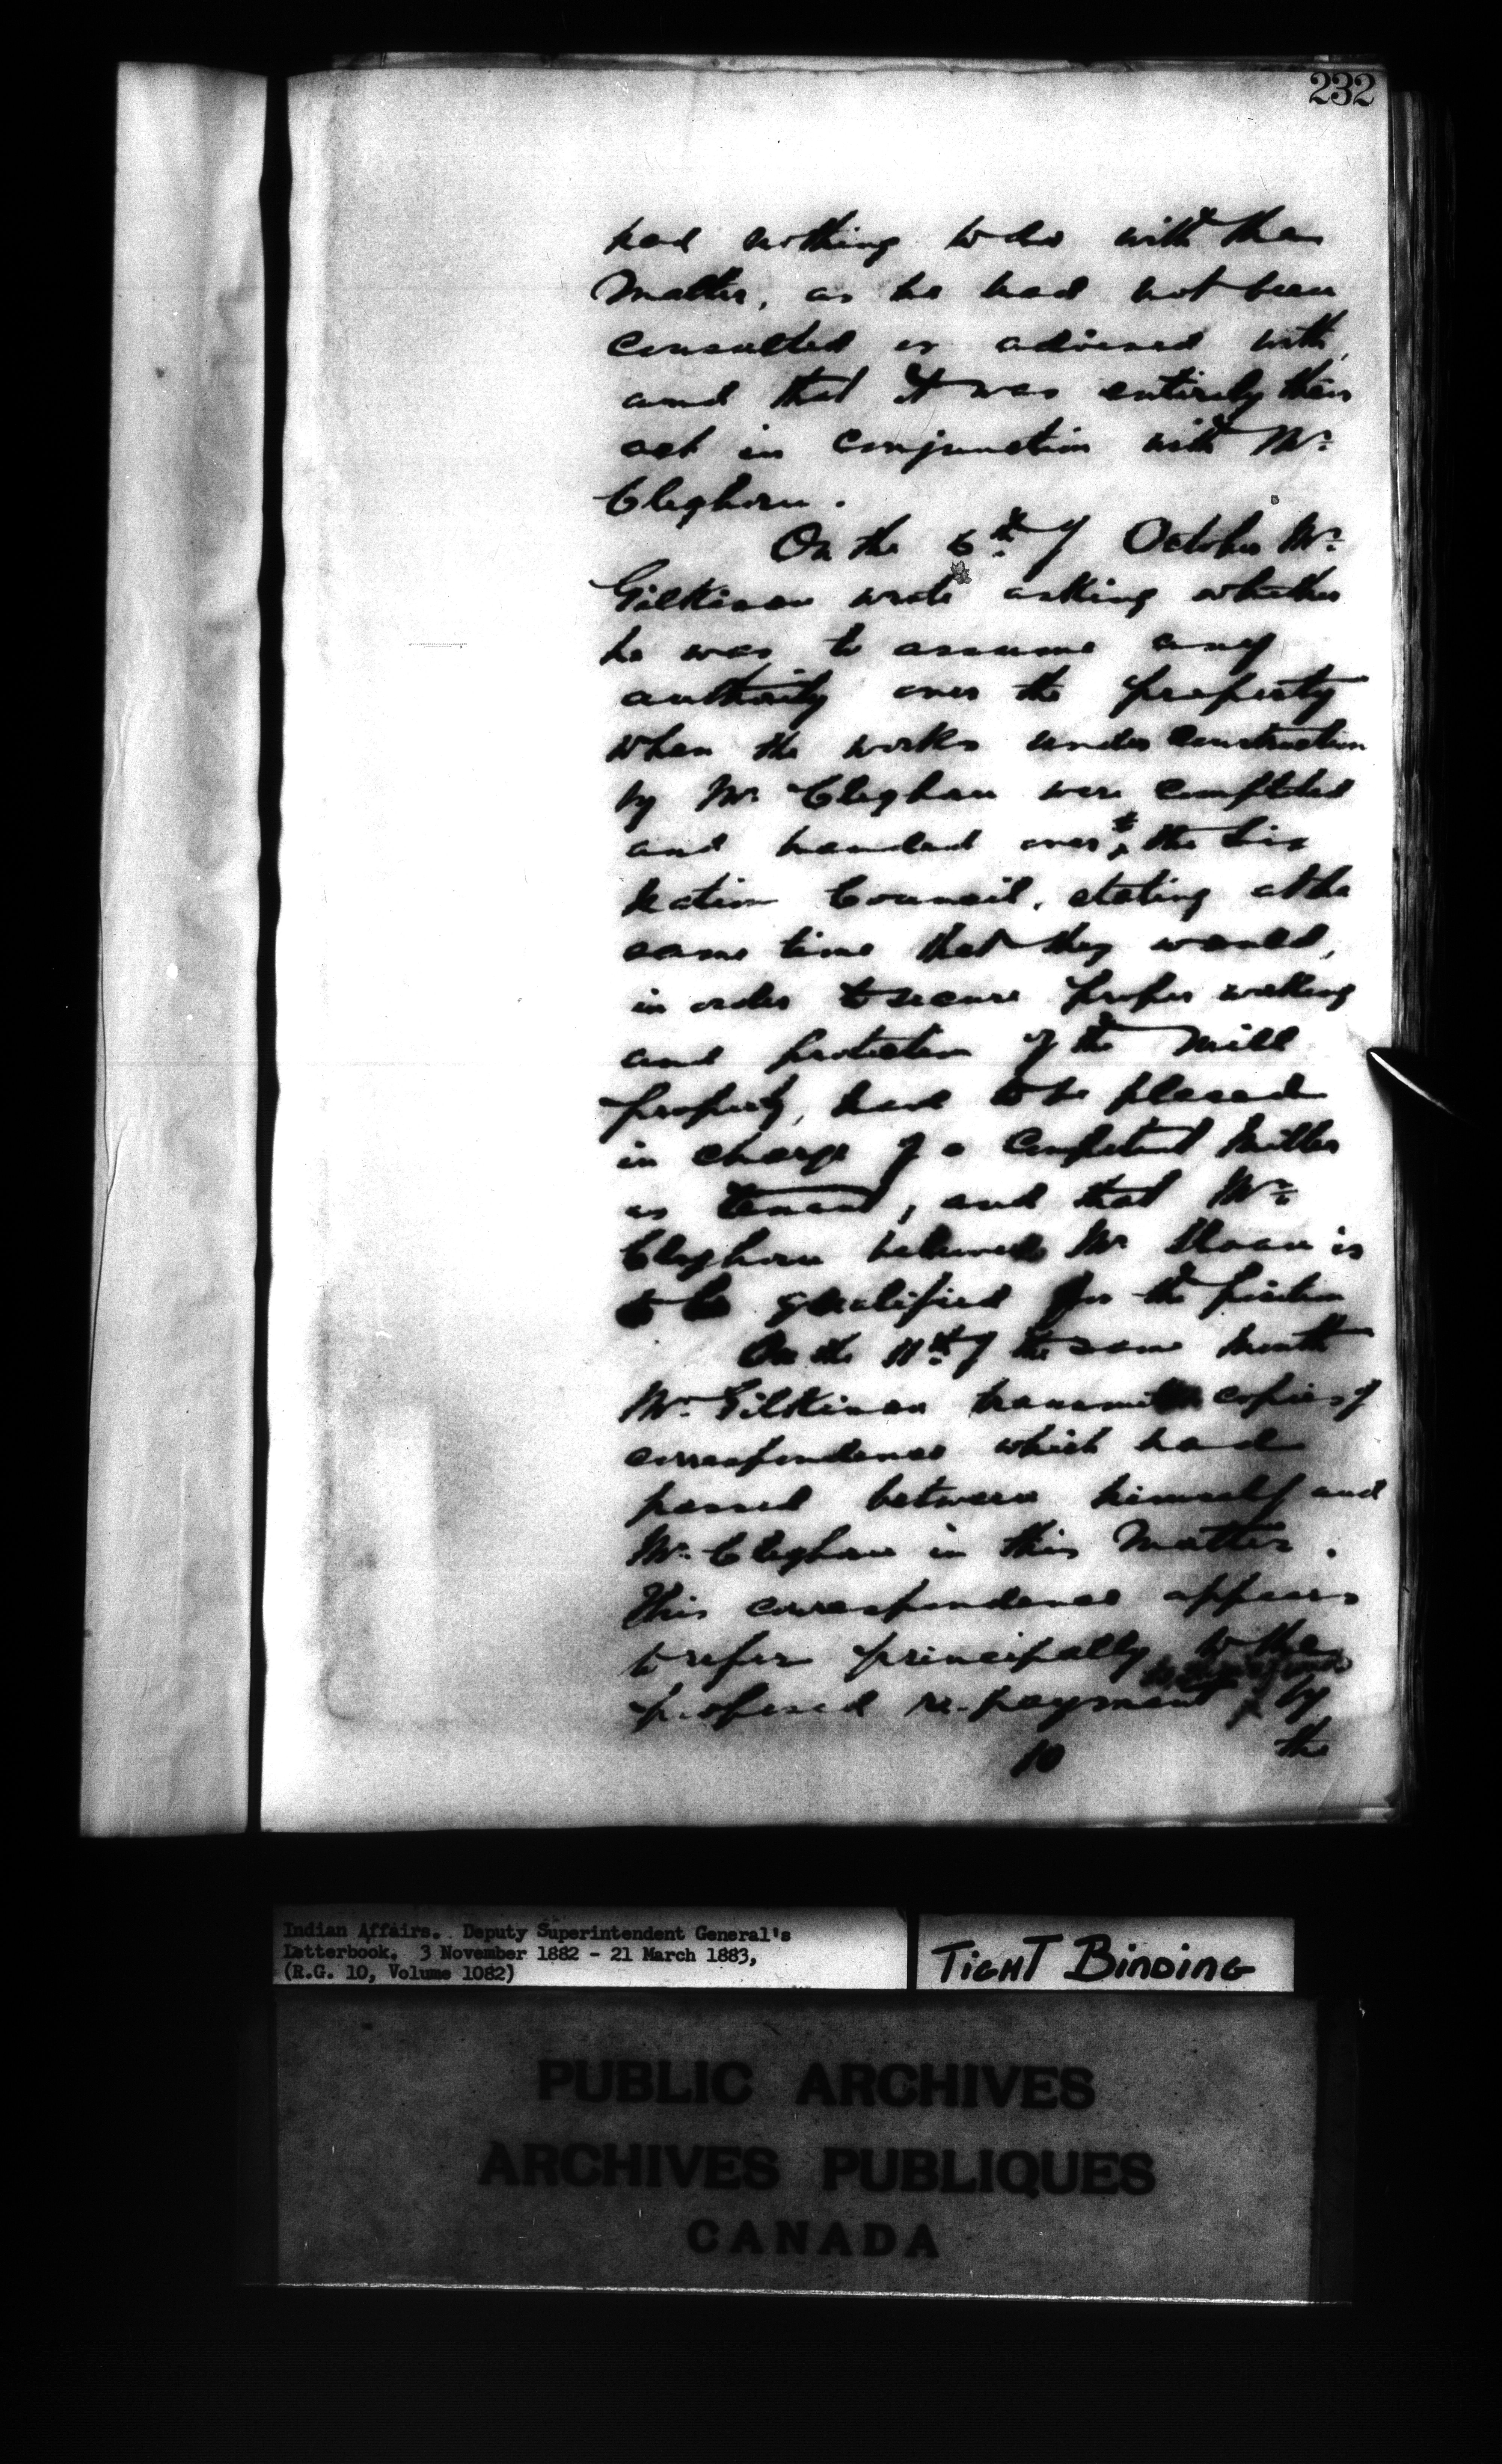 232
had nothing to do with the
matter, as he had not been
consulted or advised with,
and that it was entirely their
act in conjunction with Mr.
Cleghorn.
On the 6th of October Mr.
Gilkison wrote asking whether
he was to assume any
authority over the property
when the works under construction
by Mr Cleghorn were completed
and handed over to the Six
Nation Council, stating at the
same time that they would,
in order to secure proper working
and protection of the mill
property, have to be placed
in charge of a competent miller
as tenant, and that Mr.
Cleghorn believed Mr Sloan is
to be qualified for the position
On the 11th of the same month
Mr. Gilkison transmits copies of
correspondence which had
passed between himself and
Mr. Cleghorn in this matter.
This correspondence appears
to refer principally to the
proposed re-payment by
10 the
Indian Affairs. Deputy Superintendent General's
Letterbook. 3 November 1882 - 21 March 1883,
(R.G. 10, Volume 1082)
TIGHT BINDING
PUBLIC ARCHIVES
ARCHIVES PUBLIQUES
CANADA